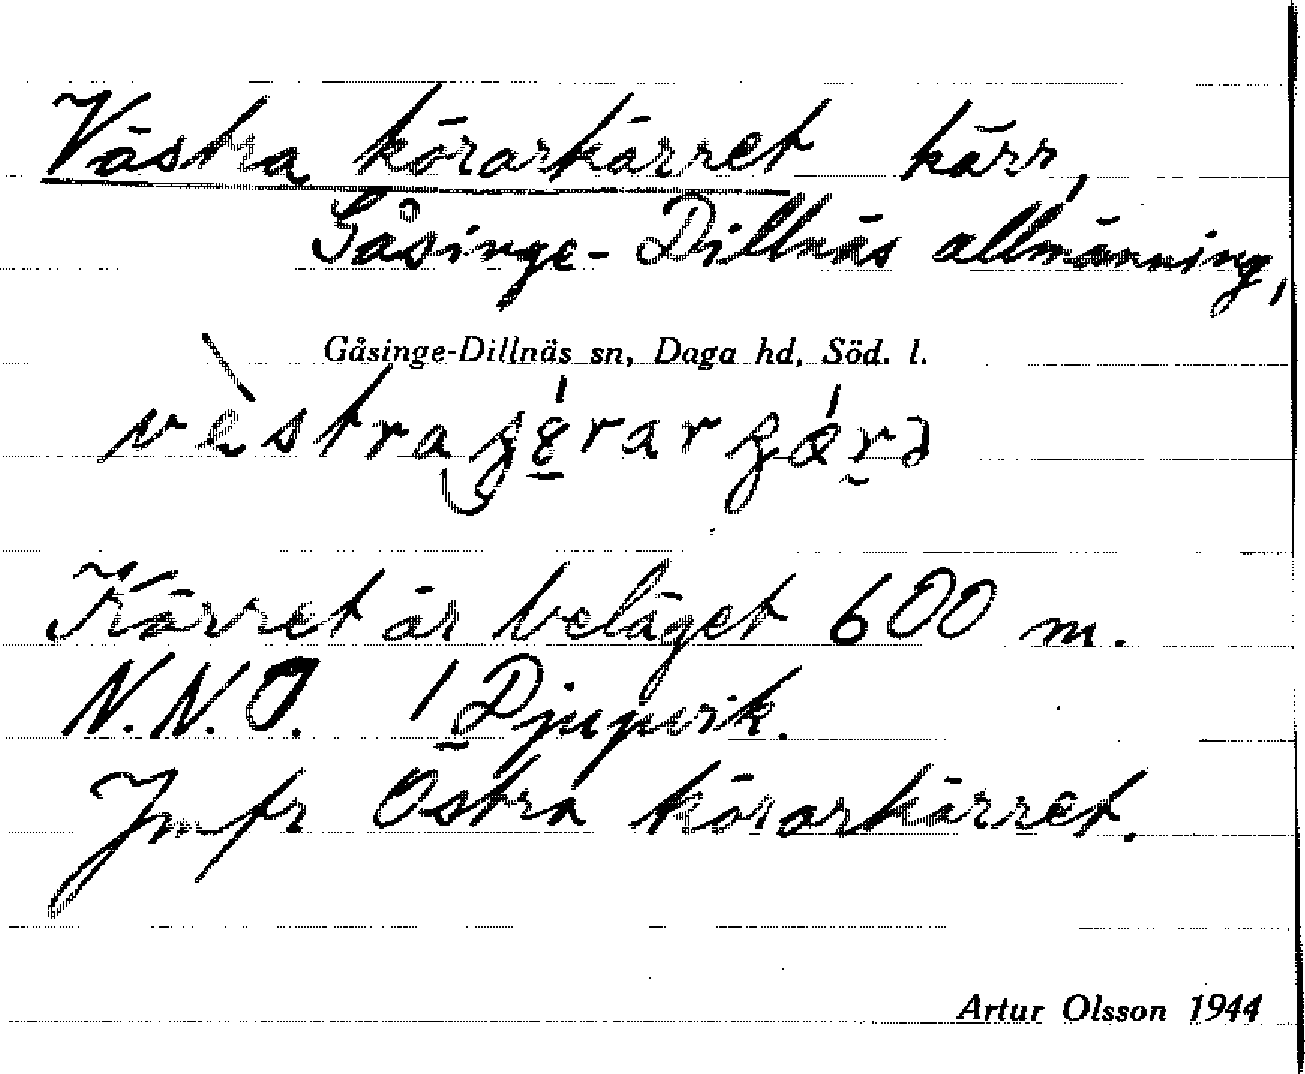 Västra körarkärret kärr,
Gåsinge-Dillnäs allmänning,
Gåsinge-Dillnäs sn, Daga hd, Söd. l.
Kärret är beläget 600 m.
N.N.O. Djupvik.
Jmfr Östra körarkärret.
Artur Olsson 1944